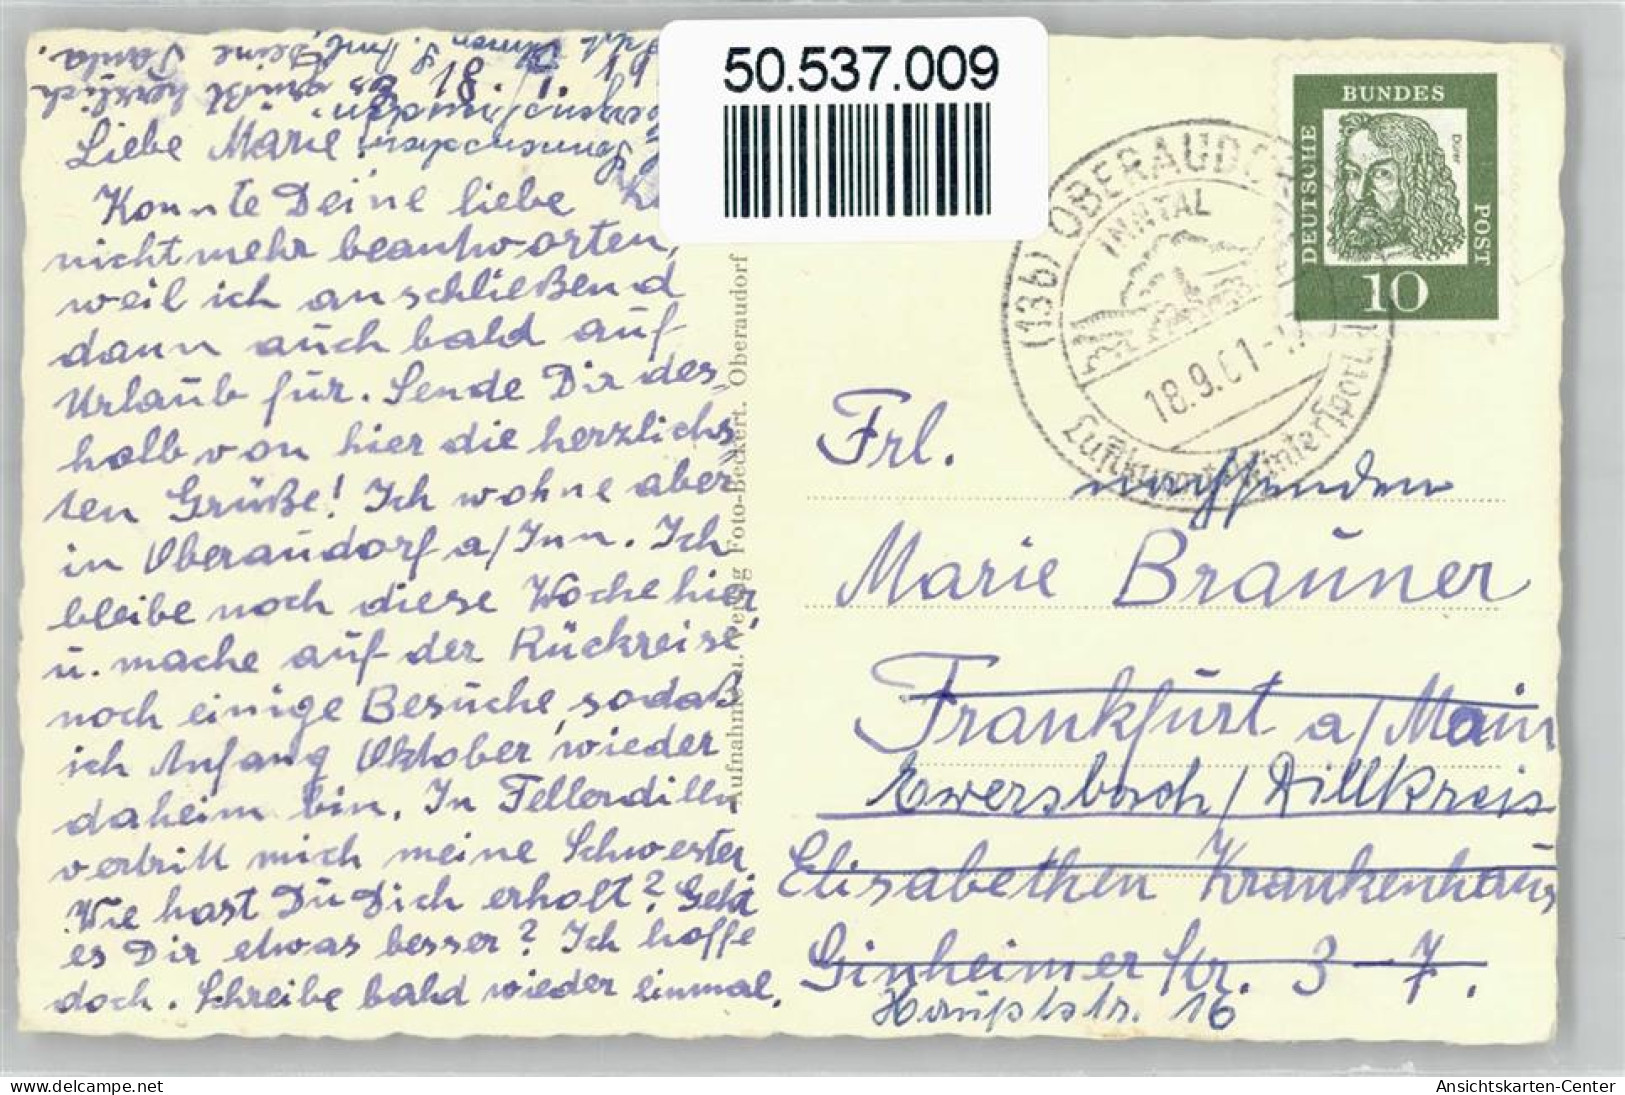 50.537.009
Liebe Marie!
Konnte Deine liebe
nicht mehr beantworten,
weil ich anschließend
dann auch bald auf
Urlaub fur. Sende Dir des=
halb von hier die herzlichs=
ten Grüße! Ich wohne aber
in Oberaudorf a/Inn. Ich
bleibe noch diese Woche hier
u. mache auf der Rückreise
noch einige Besuche, sodaß
ich Anfang Oktober wieder
daheim bin. In Fellerdilln
vertritt mich meine Schwester.
Wie hast Du Dich erholt? Geht
es Dir etwas besser? Ich hoffe
doch. Schreibe bald wieder einmal.
es grüßt herzlich
Deine Paula.
Aufnahme u. Verlag Foto-Beckert. Oberaudorf
BUNDES
DEUTSCHE
POST
Dürer
10
(13b) OBERAUDORF
INNTAL
18.9.61
Luftkurort Wintersport
Frl.
nachsenden
Marie Brauner
Frankfurt a/Main
Ewersbach/Dillkreis
Elisabethen Krankenhaus
Ginheimer Str. 3-7.
Hauptstr. 16
delcampe.net
Ansichtskarten-Center